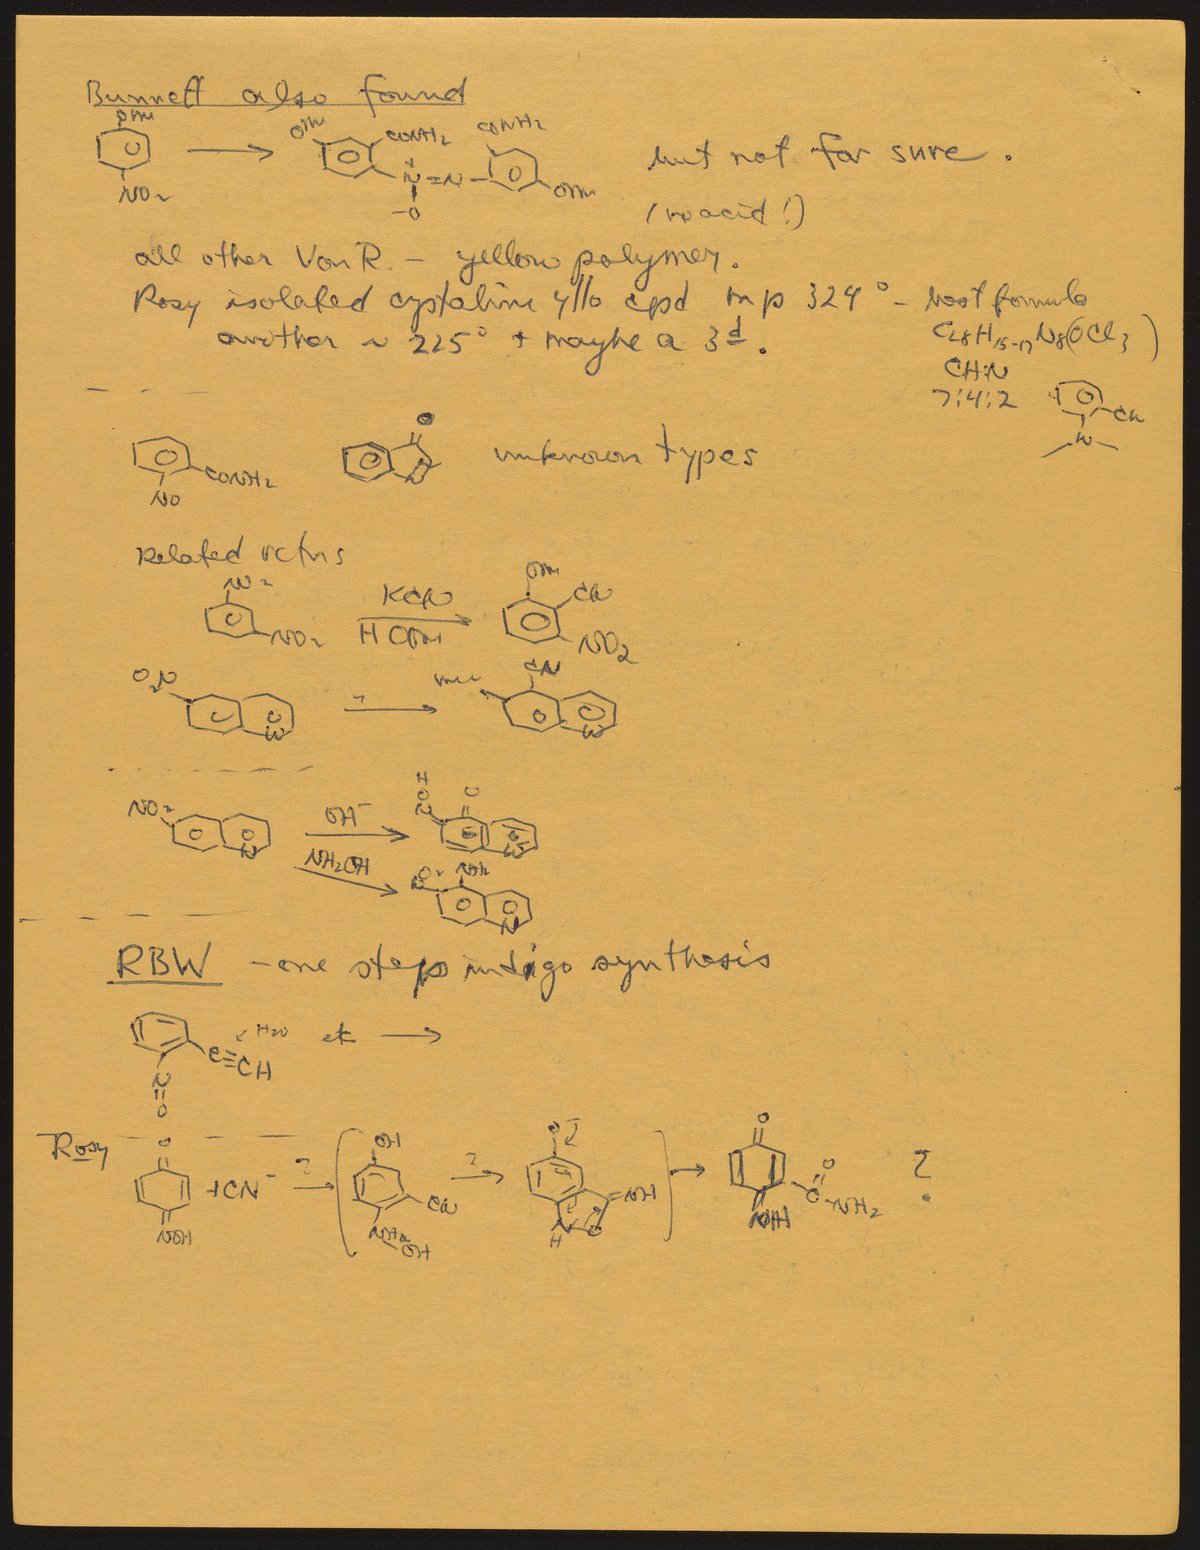 Bunnett also found
OMe OMe CONH2 CONH2
NO2 N=N OMe
-O
but not for sure.
(no acid!)
all other Von R. – yellow polymer.
Rosy isolated cystaline yllo cpd mp 324° – best formula
another ~ 225° + maybe a 3d. C28H15-17N8(OCl3)
CH:N
7:4:2
CN
N
O
CONH2 N
NO
unknown types
Related rctns
NO2
NO2 KCN
HOMe
OMe CN
NO2
O2N N ? CN
N
NO2 N OH-
NH2OH
HON O
N
NH2
N
RBW – one steps indigo synthesis
C≡CH H2O etc
N=O
Rosy
O
NOH
+CN- ?
OH
CN
NH
OH
?
O
=NH
N
H
O
O
NH
O
C-NH2
?